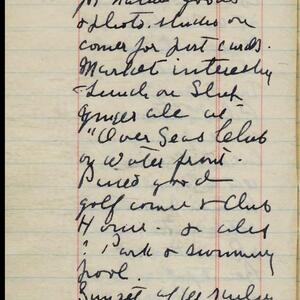 for
& photo. studio on
corner for post cards.
Market interesting
Lunch on Ship
ginger ale at
"Over Seas Club
on water front.
Passed good
golf course & Club
House. & also
" Park & swimming
pool.
Sunset after